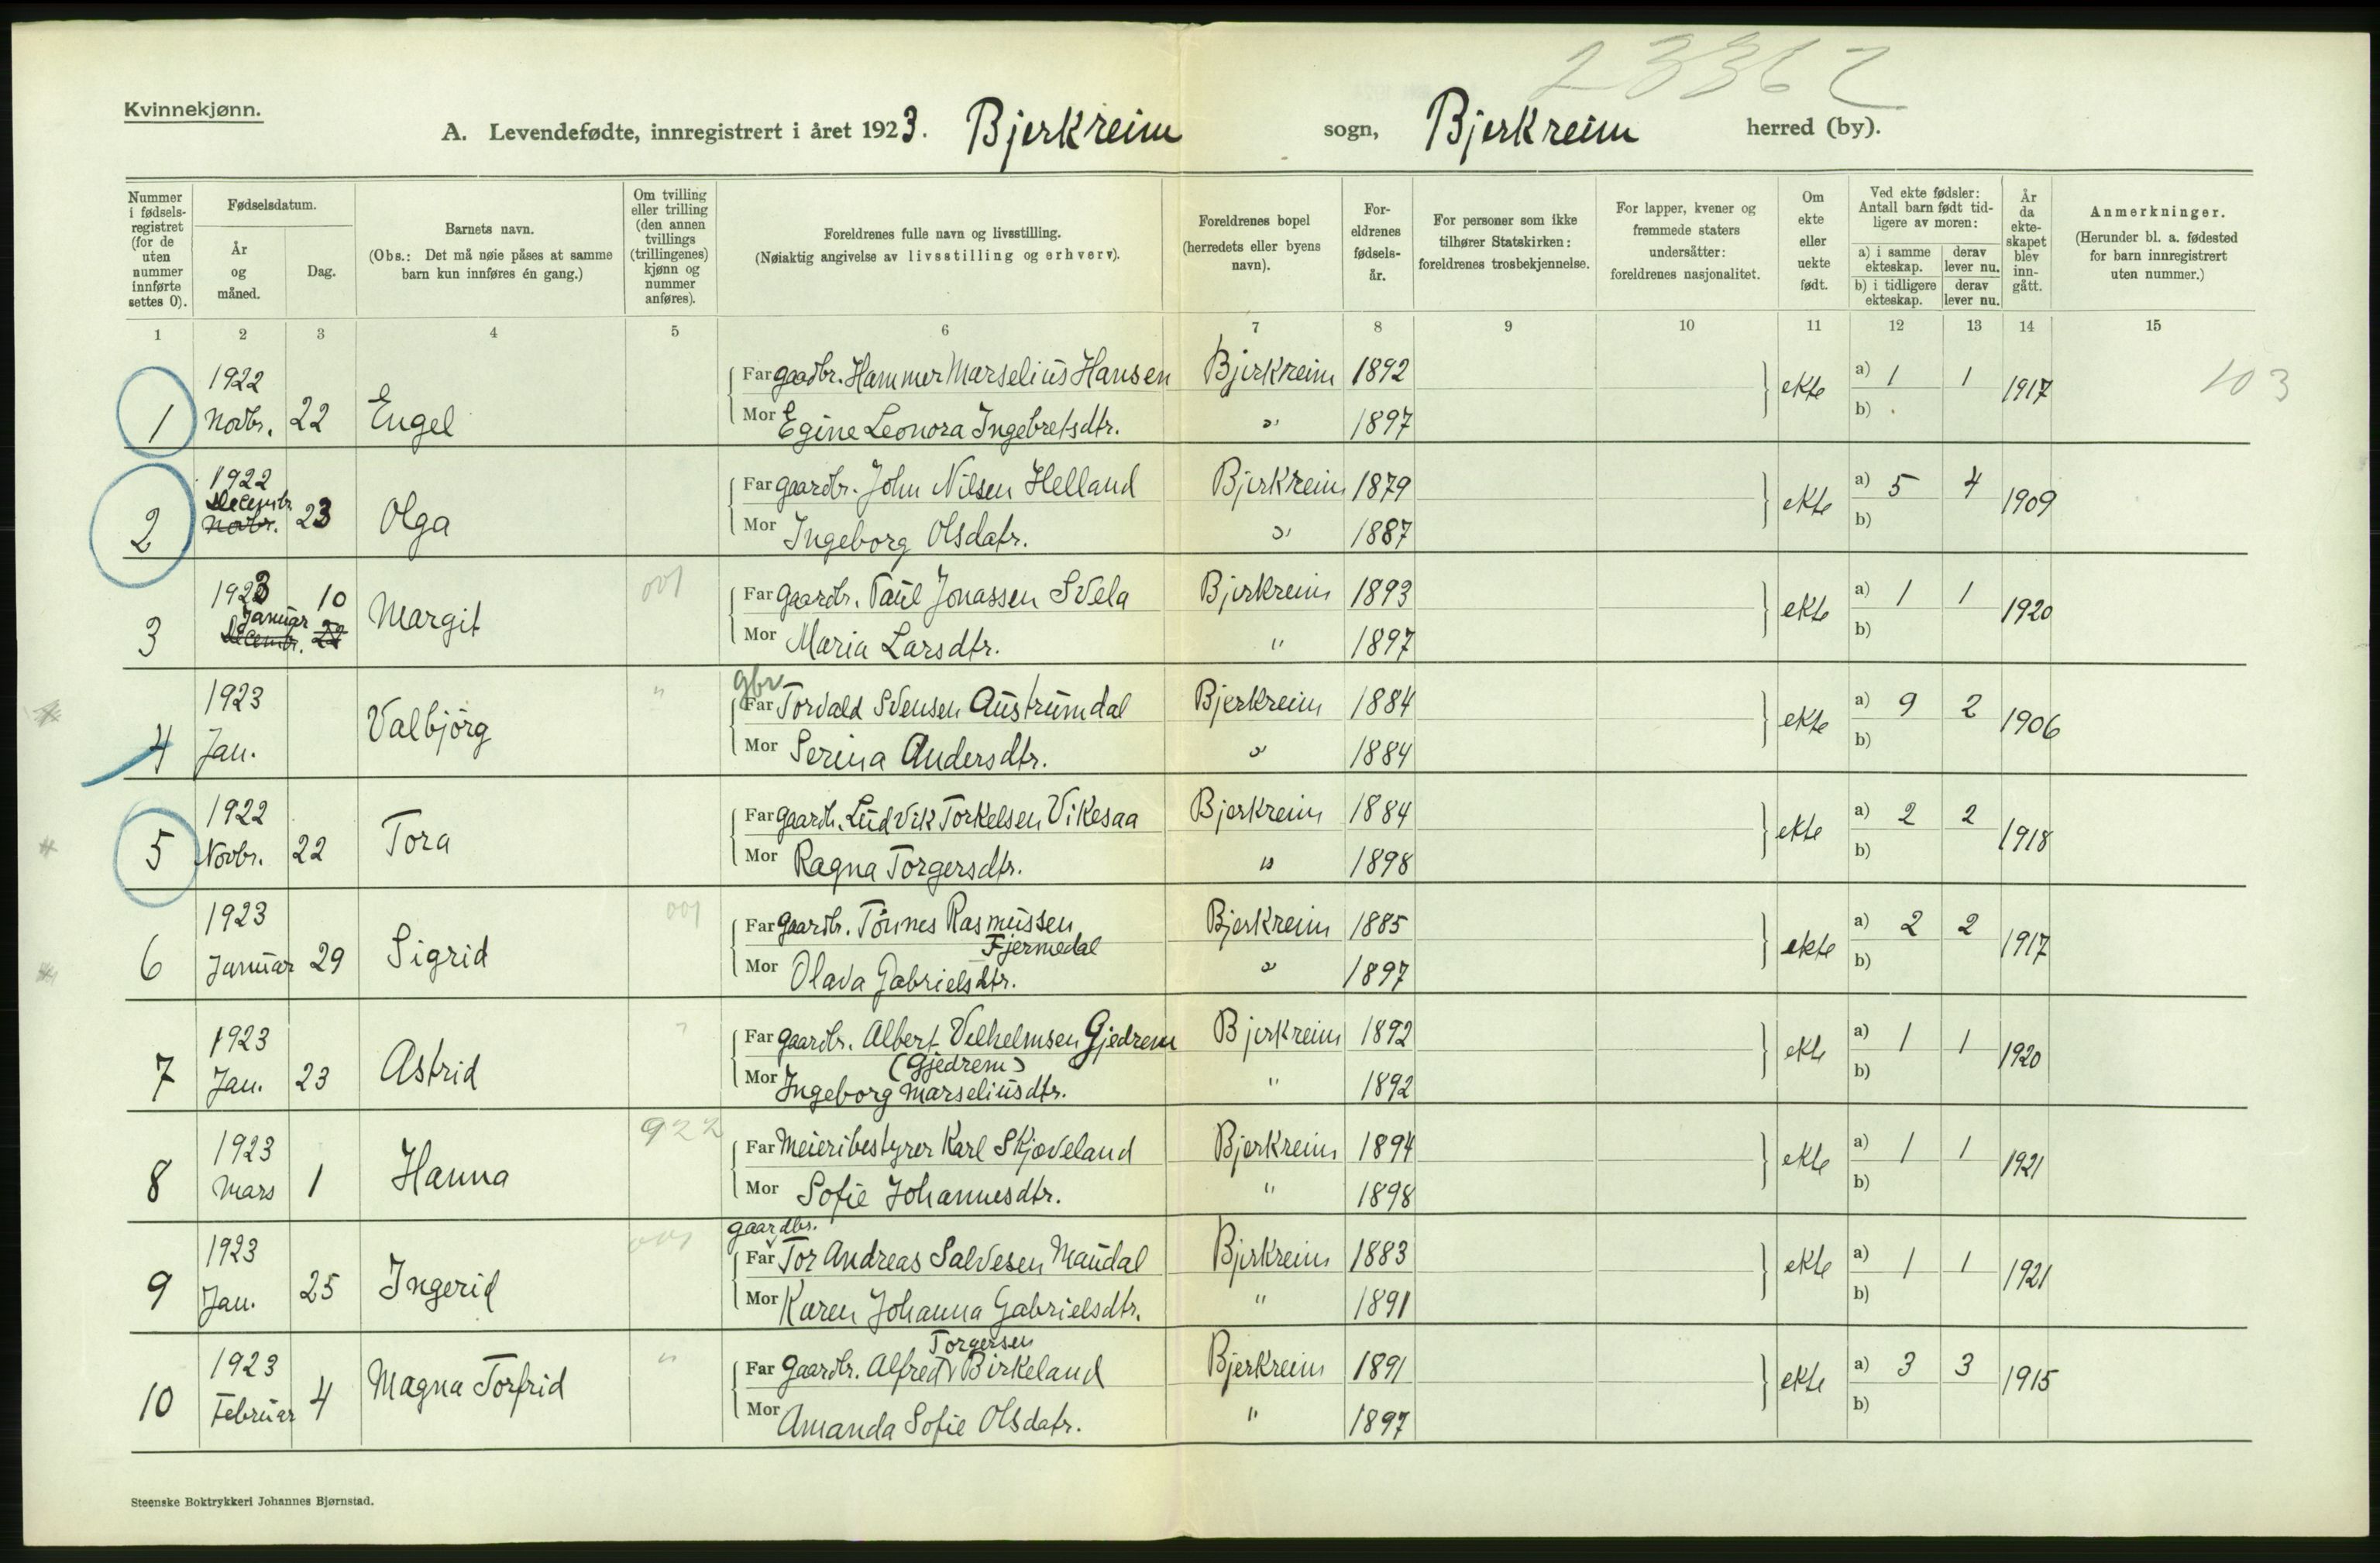 23362
Kvinnekjønn.
A. Levendefødte, innregistrert i året 1923. Bjerkreim sogn, Bjerkreim herred (by).
Nummer i fødsels-registret (for de uten nummer innførte settes 0).
Fødselsdatum.
År og måned.
Dag.
Barnets navn.
(Obs.: Det må nøie påses at samme barn kun innføres én gang.)
Om tvilling eller trilling (den annen tvillings (trillingenes) kjønn og nummer anføres).
Foreldrenes fulle navn og livsstilling.
(Nøiaktig angivelse av livsstilling og erhverv).
Foreldrenes bopel (herredets eller byens navn).
For-eldrenes fødsels-år.
For personer som ikke tilhører Statskirken: foreldrenes trosbekjennelse.
For lapper, kvener og fremmede staters undersåtter: foreldrenes nasjonalitet.
Om ekte eller uekte født.
Ved ekte fødsler: Antall barn født tid-ligere av moren:
a) i samme ekteskap. derav lever nu.
b) i tidligere ekteskap. derav lever nu.
År da ekte-skapet blev inn-gått.
Anmerkninger.
(Herunder bl. a. fødested for barn innregistrert uten nummer.)
1 2 3 4 5 6 7 8 9 10 11 12 13 14 15
1 1922 Novbr. 22 Engel Far gaardbr. Hammer Marselius Hansen Bjerkreim 1892 ekte a) 1 1 1917 103
Mor Egine Leonora Ingebretsdtr. " 1897 b)
2 1922 Decembr. Novbr. 23 Olga Far gaardbr. John Nilsen Helland Bjerkreim 1879 ekte a) 5 4 1909
Mor Ingeborg Olsdatr. " 1887 b)
3 1923 Januar 10 Decembr. 22 Margit 001 Far gaardbr. Paul Jonassen Svela Bjerkreim 1893 ekte a) 1 1 1920
Mor Maria Larsdtr. " 1897 b)
4 1923 Jan. Valbjörg " gbr Far Torvald Svensen Austrumdal Bjerkreim 1884 ekte a) 9 2 1906
Mor Serina Andersdtr. " 1884 b)
5 1922 Novbr. 22 Tora Far gaardb. Ludvik Torkelsen Vikesaa Bjerkreim 1884 ekte a) 2 2 1918
Mor Ragna Torgersdtr. " 1898 b)
6 1923 Januar 29 Sigrid 001 Far gaardbr. Tönnes Rasmussen Fjermedal Bjerkreim 1885 ekte a) 2 2 1917
Mor Olava Gabrielsdtr. " 1897 b)
7 1923 Jan. 23 Astrid " Far gaardbr. Albert Vilhelmsen Gjedrem (Gjedrem) Bjerkreim 1892 ekte a) 1 1 1920
Mor Ingeborg Marseliusdtr. " 1892 b)
8 1923 Mars 1 Hanna 922 Far Meieribestyrer Karl Skjæveland Bjerkreim 1894 ekte a) 1 1 1921
Mor Sofie Johannesdtr. " 1898 b)
9 1923 Jan. 25 Ingerid 001 gaardbr. Far Tor Andreas Salvesen Maudal Bjerkreim 1883 ekte a) 1 1 1921
Mor Karen Johanna Gabrielsdtr. " 1891 b)
10 1923 Februar 4 Magna Torfrid " Far Gaardbr. Alfred Torgersen Birkeland Bjerkreim 1891 ekte a) 3 3 1915
Mor Amanda Sofie Olsdatr. " 1897 b)
Steenske Boktrykkeri Johannes Bjørnstad.